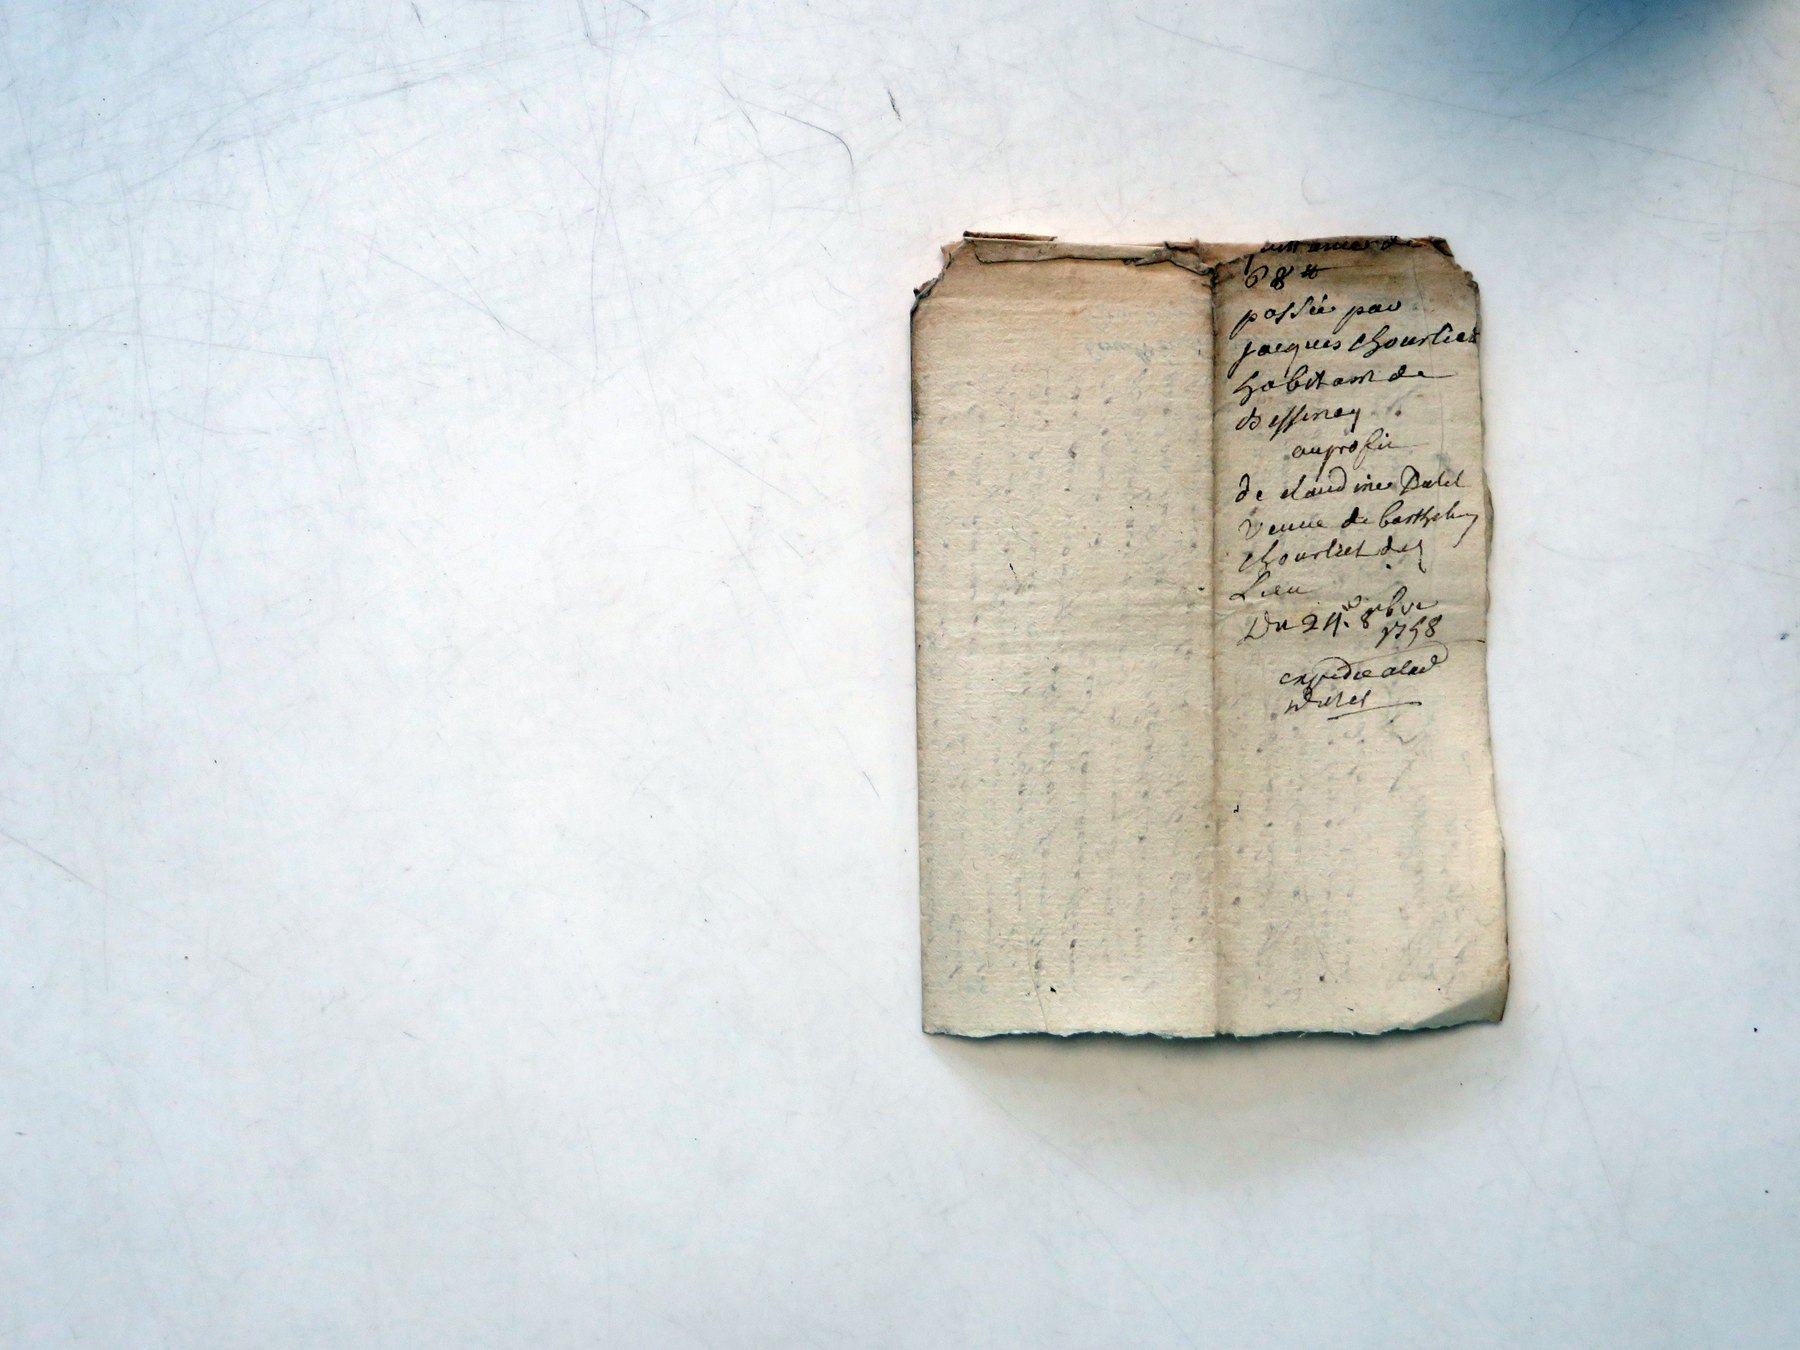 quittance de
68 ₶
passée par
jacques chourliet
habitant de
Bessenay
au profit
de claudine
veuve de barthelmy
chourliet du
Lieu
Du 24e. 8bre
1758
expedie alad